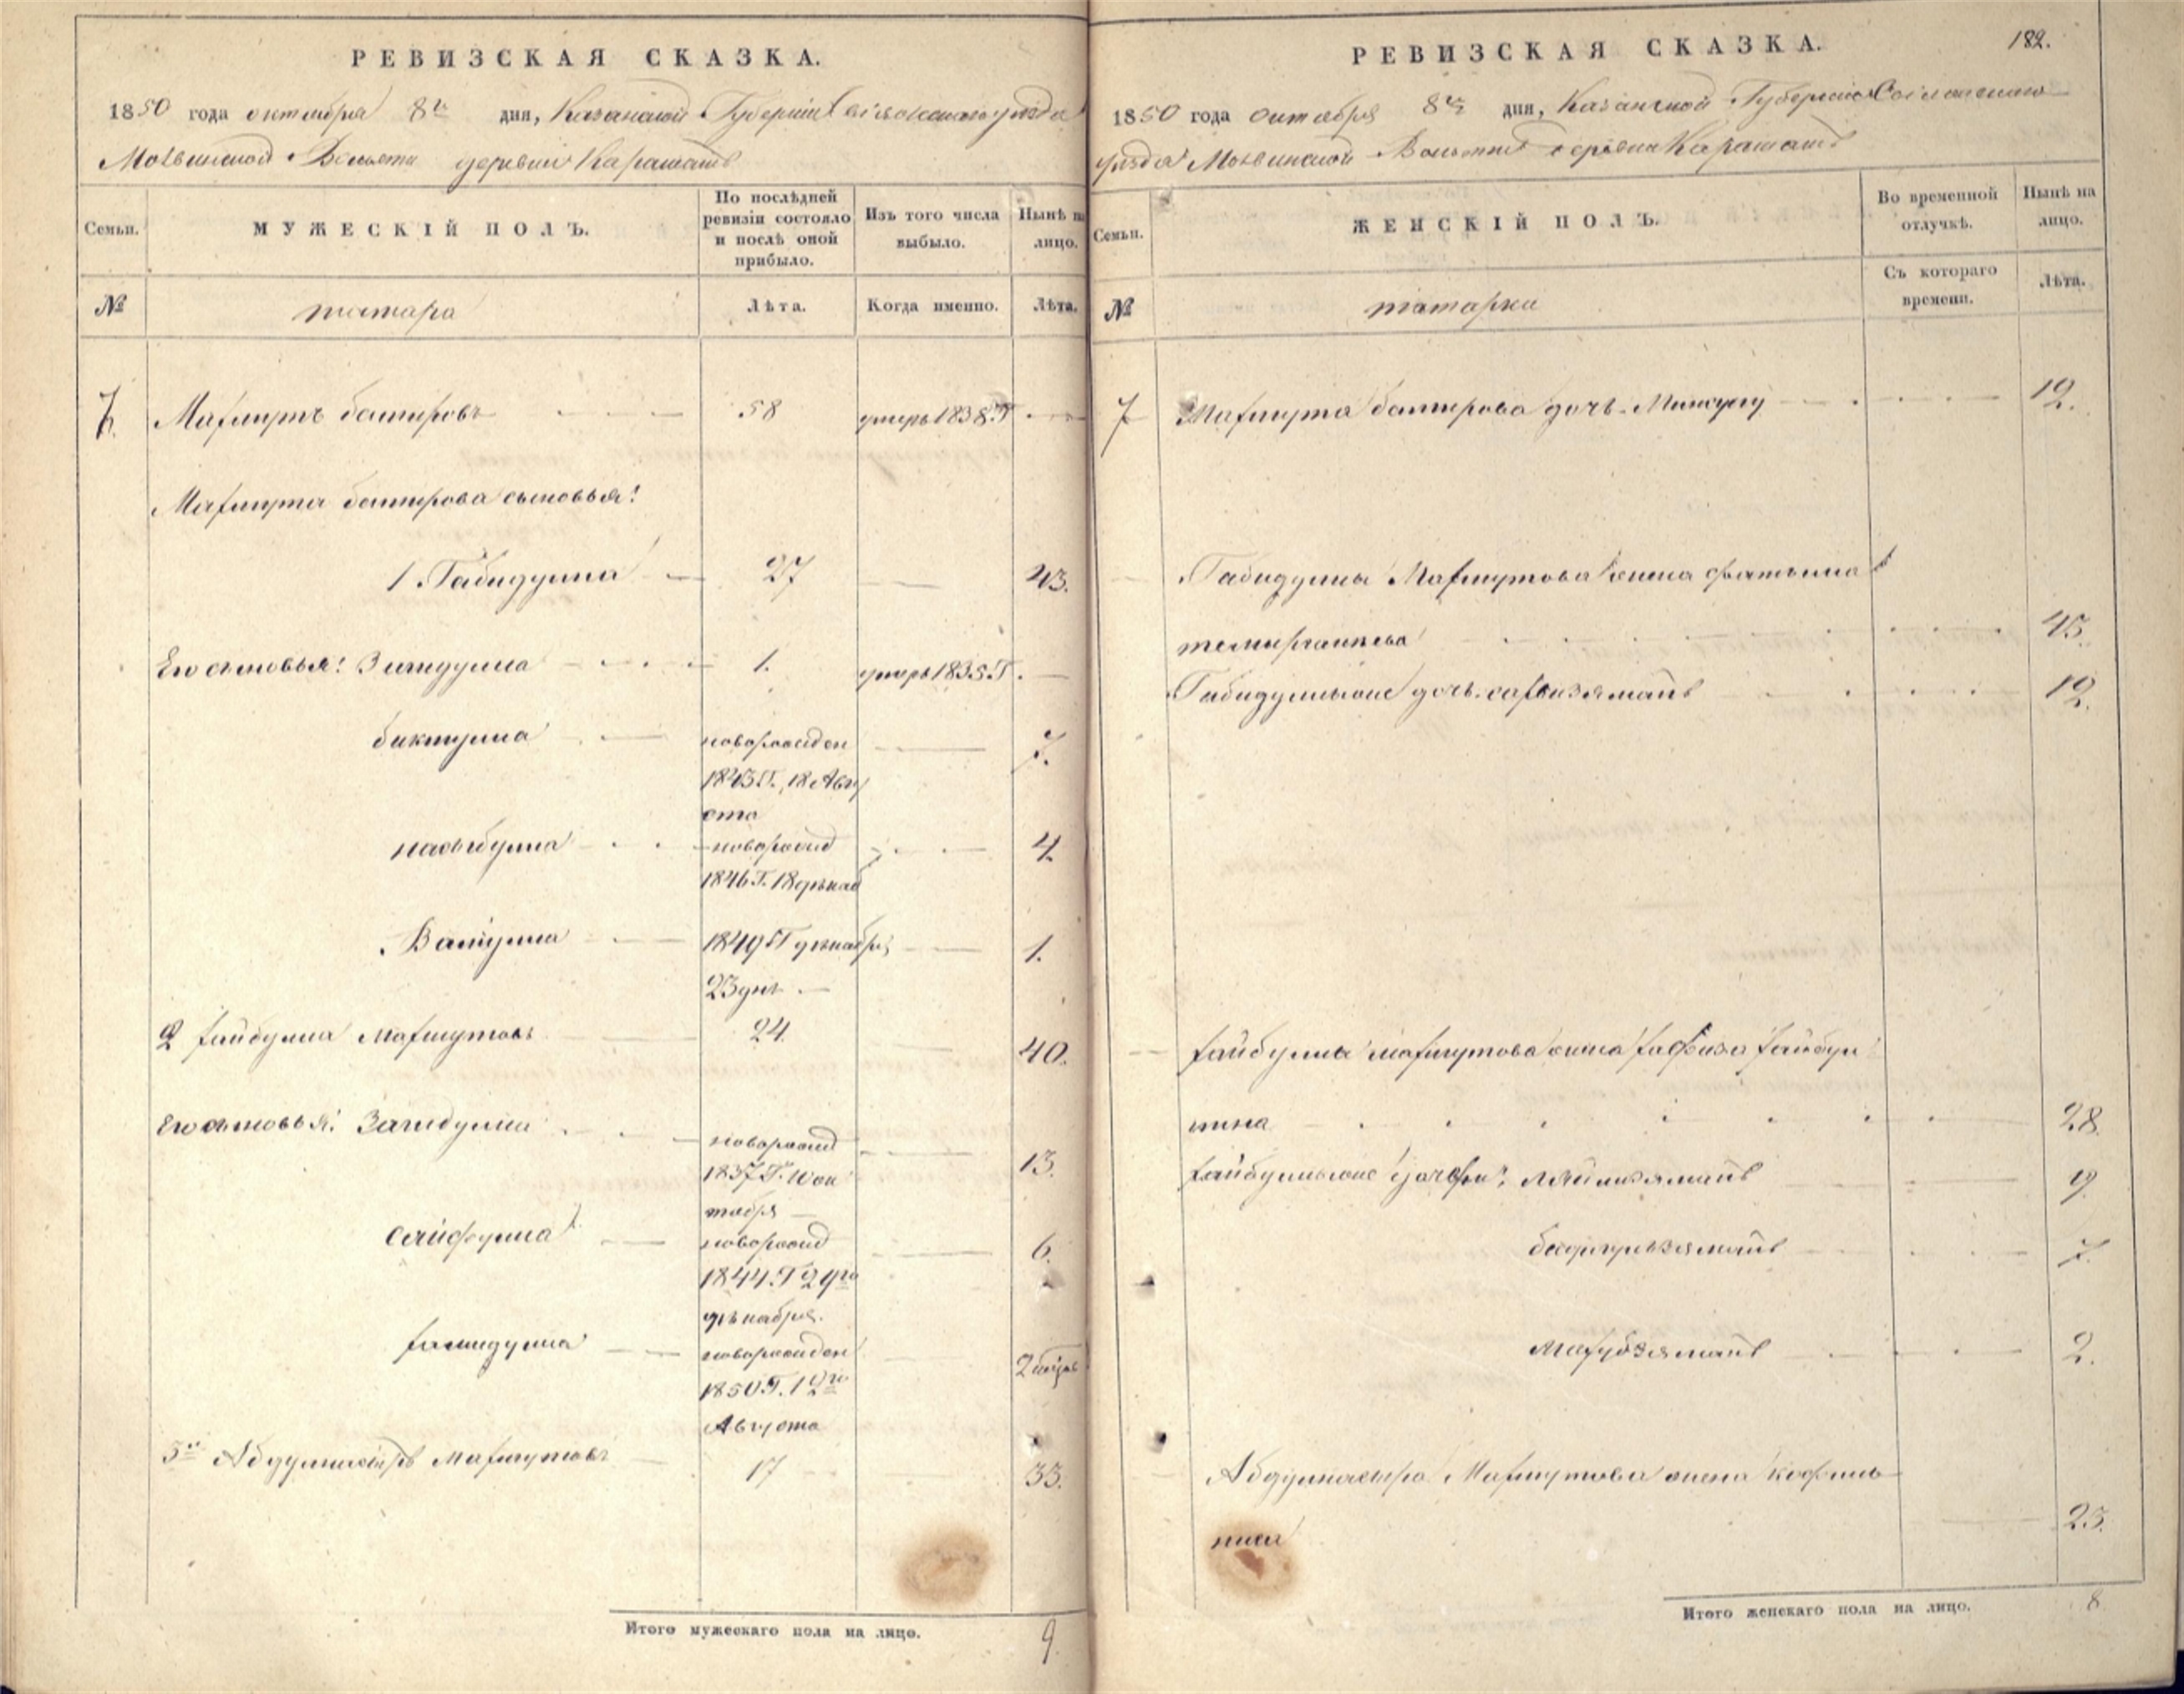 РЕВИЗСКАЯ СКАЗКА.
1850 года октября 8го дня, Казанской Губернии Свіяжскаго уезда
Мокшинской Волости деревни Каратаевъ
Семьи.
МУЖЕСКІЙ ПОЛЪ.
По послѣдней
ревизіи состояло
и послѣ оной
прибыло.
Изъ того числа
выбыло.
Нынѣ на
лицо.
№
татара
Лѣта.
Когда именно.
Лѣта.
7.
Махмутъ башировъ
58
умеръ 1838 Г
Махмута баширова сыновья:
1. Габидулла
27
43.
Его сыновья: Зиядулла
1.
умеръ 1835 Г.
биктулла
новорожден
7.
1843 Г. 18 Авгу
ста
насыбулла
новорожд
4.
1846 Г. 18 декаб
Валиулла
1849 Г декабря
1.
23 дня
2 хайбулла Махмутовъ
24
40.
Его сыновья: Загидулла
новорожд
13.
1837 Г. 10 ок
тября
сайфулла
новорожд
6.
1844 Г 29го
декабря.
хамидулла
новорожден
1850 Г. 12го
Августа
3й Махмутовъ
17
33.
Итого мужескаго пола на лицо.
9.
РЕВИЗСКАЯ СКАЗКА.
182.
1850 года октября 8го дня, Казанской Губернии Свіяжскаго
уезда Мокшинской Волости деревни Каратаевъ
Семьи.
ЖЕНСКІЙ ПОЛЪ.
Во временной
отлучкѣ.
Нынѣ на
лицо.
№
татарки
Съ котораго
времени.
Лѣта.
7
Махмута баширова дочь Минсулу
12.
Габидуллы Махмутова жена фатыма
темиргалиева
45.
Габидуллы дочь сарвизяманъ
12.
хайбуллы махмутова жена хафиза хайбул
лина
28.
хайбуллы дочери: ляйлизяманъ
9.
бадризяманъ
7.
махубзяманъ
2.
Махмутова жена
23.
Итого женскаго пола на лицо.
8